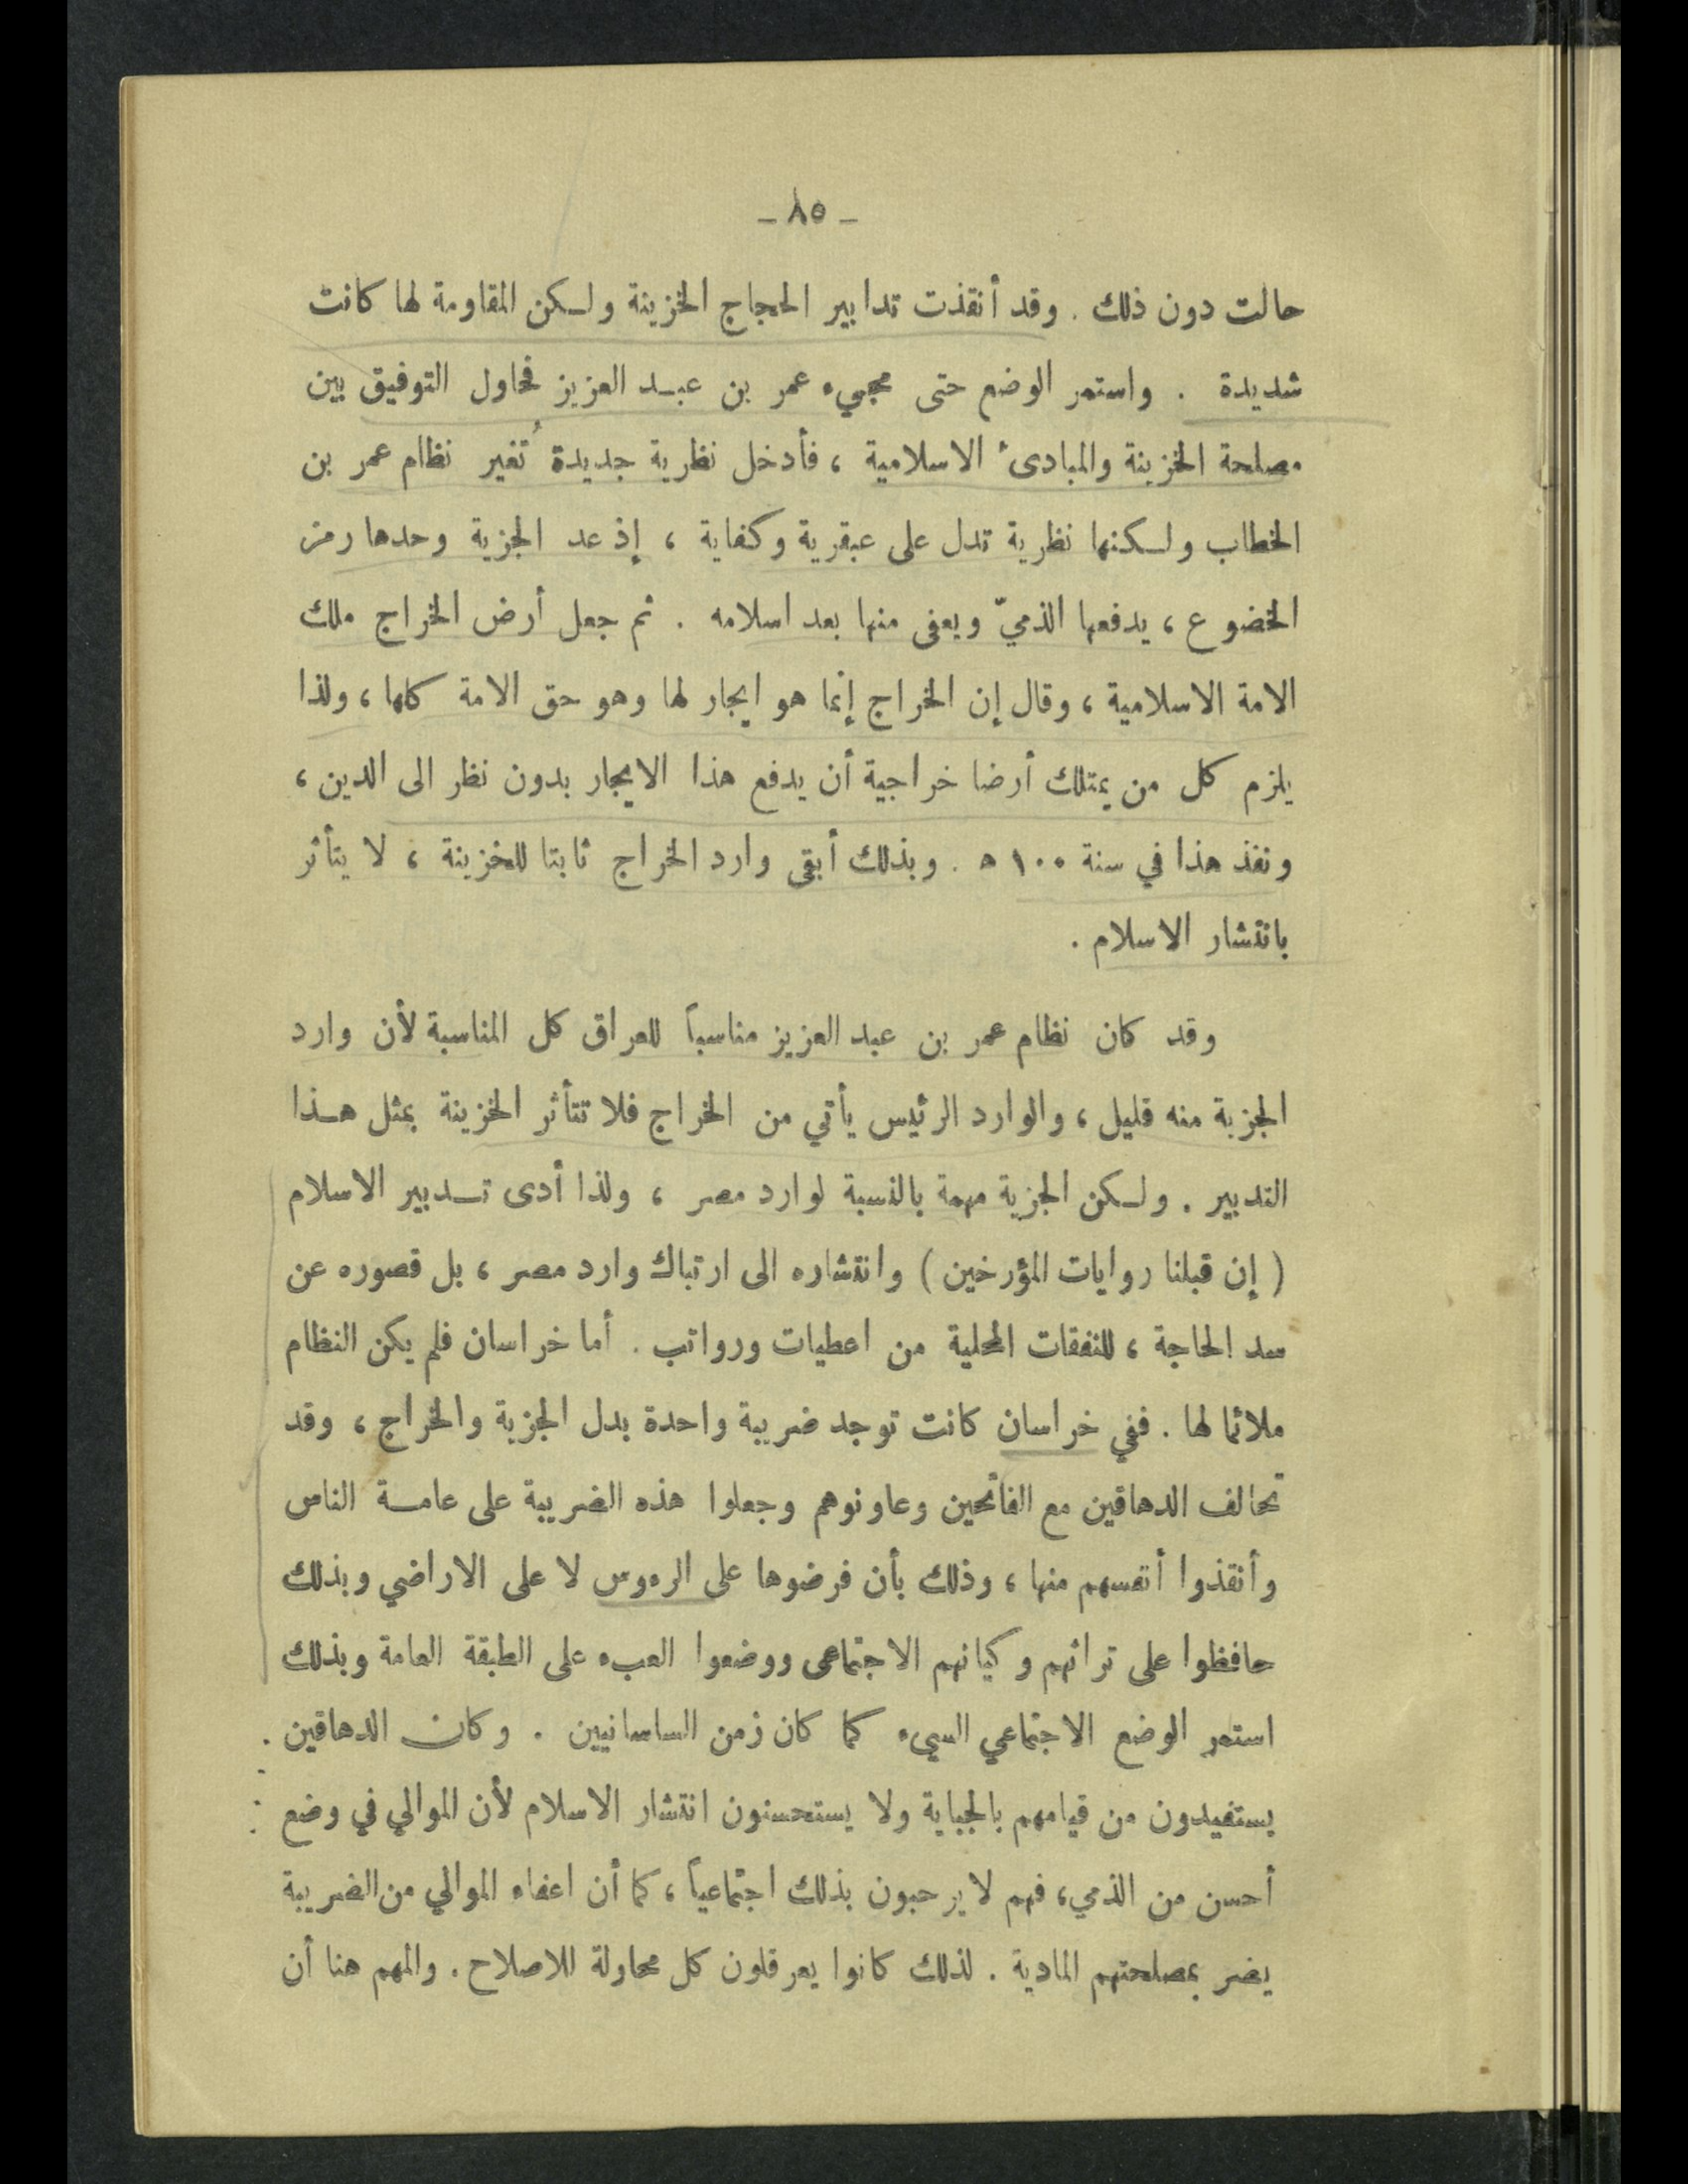 - ٨٥ -
حالت دون ذلك . وقد أنقذت تدابير الحجاج الخزينة ولـكن المقاومة لها كانت
شديدة . واستمر الوضع حتى مجيء عمر بن عبـد العزيز فحاول التوفيق بين
مصلحة الخزينة والمبادىء الاسلامية ، فأدخل نظرية جديدة تُغير نظام عمر بن
الخطاب ولـكنها نظرية تدل على عبقرية وكفاية ، إذ عد الجزية وحدها رمز
الخضوع ، يدفعها الذميّ ويعفى منها بعد اسلامه . ثم جعل أرض الخراج ملك
الامة الاسلامية ، وقال إن الخراج إنما هو ايجار لها وهو حق الامة كلها ، ولذا
يلزم كل من يمتلك أرضا خراجية أن يدفع هذا الايجار بدون نظر الى الدين ،
ونفذ هذا في سنة ١٠٠ ه . وبذلك أبقى وارد الخراج ثابتا للخزينة ، لا يتأثر
بانتشار الاسلام .
وقد كان نظام عمر بن عبد العزيز مناسباً للعراق كل المناسبة لأن وارد
الجزية منه قليل ، والوارد الرئيس يأتي من الخراج فلا تتأثر الخزينة بمثل هـذا
التدبير . ولـكن الجزية مهمة بالنسبة لوارد مصر ، ولذا أدى تـدبير الاسلام
( إن قبلنا روايات المؤرخين ) وانتشاره الى ارتباك وارد مصر ، بل قصوره عن
سد الحاجة ، للنفقات المحلية من اعطيات ورواتب . أما خراسان فلم يكن النظام
ملائما لها . ففي خراسان كانت توجد ضريبة واحدة بدل الجزية والخراج ، وقد
تحالف الدهاقين مع الفاتحين وعاونوهم وجعلوا هذه الضريبة على عامـة الناس
وأنقذوا أنفسهم منها ، وذلك بأن فرضوها على الرءوس لا على الاراضي وبذلك
حافظوا على تراثهم وكيانهم الاجتماعى ووضعوا العبء على الطبقة العامة وبذلك
استمر الوضع الاجتماعي السيء كما كان زمن الساسانيين . وكان الدهاقين .
يستفيدون من قيامهم بالجباية ولا يستحسنون انتشار الاسلام لأن الموالي في وضع
أحسن من الذمي، فهم لا يرحبون بذلك اجتماعياً ، كما أن اعفاء الموالي من الضريبة
يضر بمصلحتهم المادية . لذلك كانوا يعرقلون كل محاولة للاصلاح . والمهم هنا أن